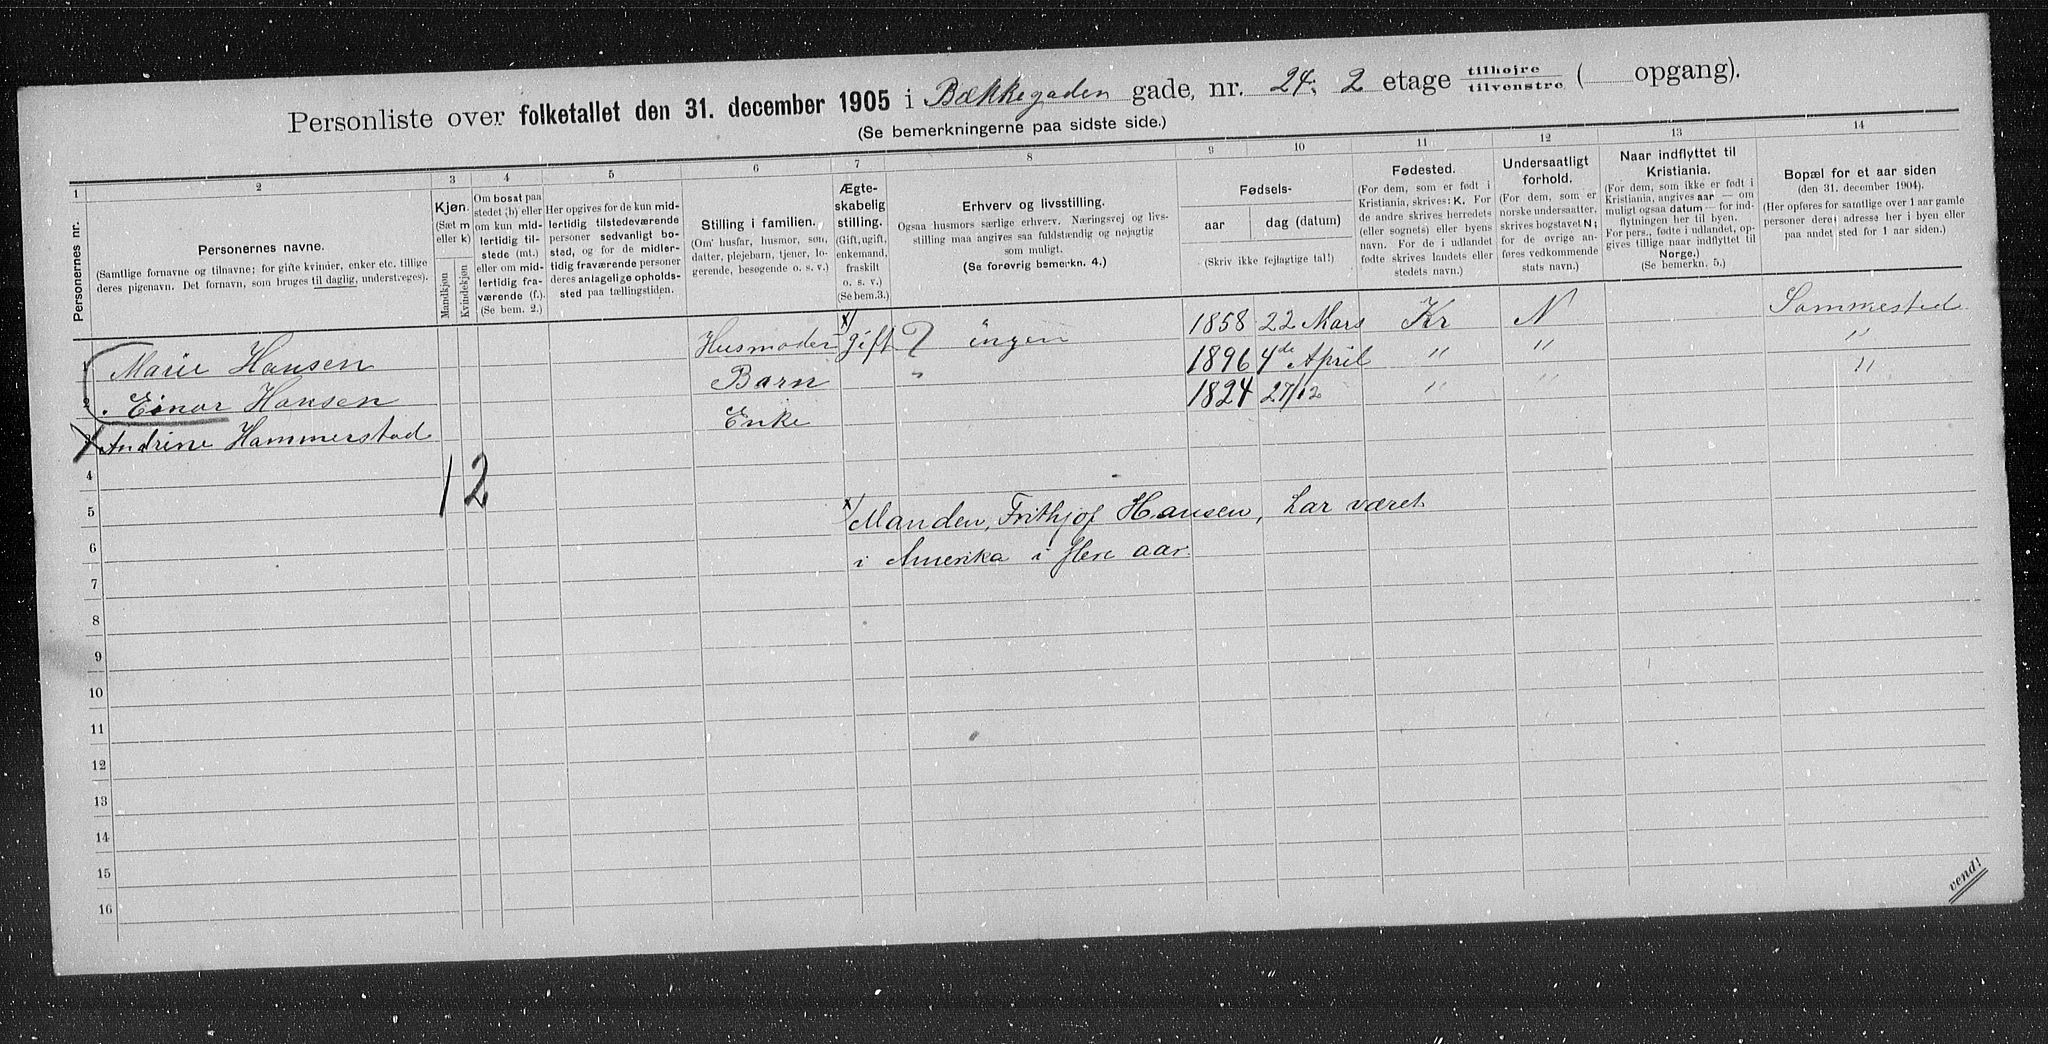 Personliste over folketallet den 31. december 1905 i Bækkegaden gade, nr. 24; 2 etage tilhøjre tilvenstre ( opgang).
(Se bemerkningerne paa sidste side.)
1 2 3 4 5 6 7 8 9 10 11 12 13 14
Personernes nr.
Personernes navne.
(Samtlige fornavne og tilnavne; for gifte kvinder, enker etc. tillige
deres pigenavn. Det fornavn, som bruges til daglig, understreges).
Kjøn.
(Sæt m
eller k)
Mandkjøn
Kvindekjøn
Om bosat paa
stedet (b) eller
om kun mid-
lertidig til-
stede (mt.)
eller om mid-
lertidig fra-
værende (f.).
(Se bem. 2.)
Her opgives for de kun mid-
lertidig tilstedeværende
personer sedvanlig bo-
sted, og for de midler-
tidig fraværende personer
deres anlagelige opholds-
sted paa tællingstiden.
Stilling i familien.
(Om husfar, husmor, søn,
datter, plejebarn, tjener, lo-
gerende, besøgende o. s. v.)
Ægte-
skabelig
stilling.
(Gift, ugift,
enkemand,
fraskilt
o. s. v.)
(Se bem.3.)
Erhverv og livsstilling.
Ogsaa husmors særlige erhverv. Næringsvej og livs-
stilling maa angives saa fuldstændig og nøjagtig
som muligt.
(Se forøvrig bemerkn. 4.)
Fødsels-
aar dag (datum)
(Skriv ikke fejlagtige tal!)
Fødested.
(For dem, som er født i
Kristiania, skrives: K. For
de andre skrives herredets
(eller sognets) eller byens
navn. For de i udlandet
fødte skrives landets eller
stedets navn.)
Undersaatligt
forhold.
(For dem, som er
norske undersaatter,
skrives bogstavet N;
for de øvrige an-
føres vedkommende
stats navn.)
Naar indflyttet til
Kristiania.
(For dem, som ikke er født i
Kristiania, angives aar — om
muligt ogsaa datum — for ind-
flytningen her til byen.
For pers., fødte i udlandet, op-
gives tillige naar indflyttet til
Norge.)
(Se bemerkn. 5.)
Bopæl for et aar siden
(den 31. december 1904).
(Her opføres for samtlige over 1 aar gamle
personer deres adresse her i byen eller
paa andet sted for 1 aar siden.)
Marie Hansen Husmoder x) gift ? ingen 1858 22 Mars Kr N Sammested
Einar Hansen Barn " 1896 4de April " " "
Andrine Hammerstad Enke 1824 27/12 " " "
4 1 2
5 x) Manden, Frithjof Hansen, har været
6 i Amerika i flere aar.
7
8
9
10
11
12
13
14
15
16
vend!